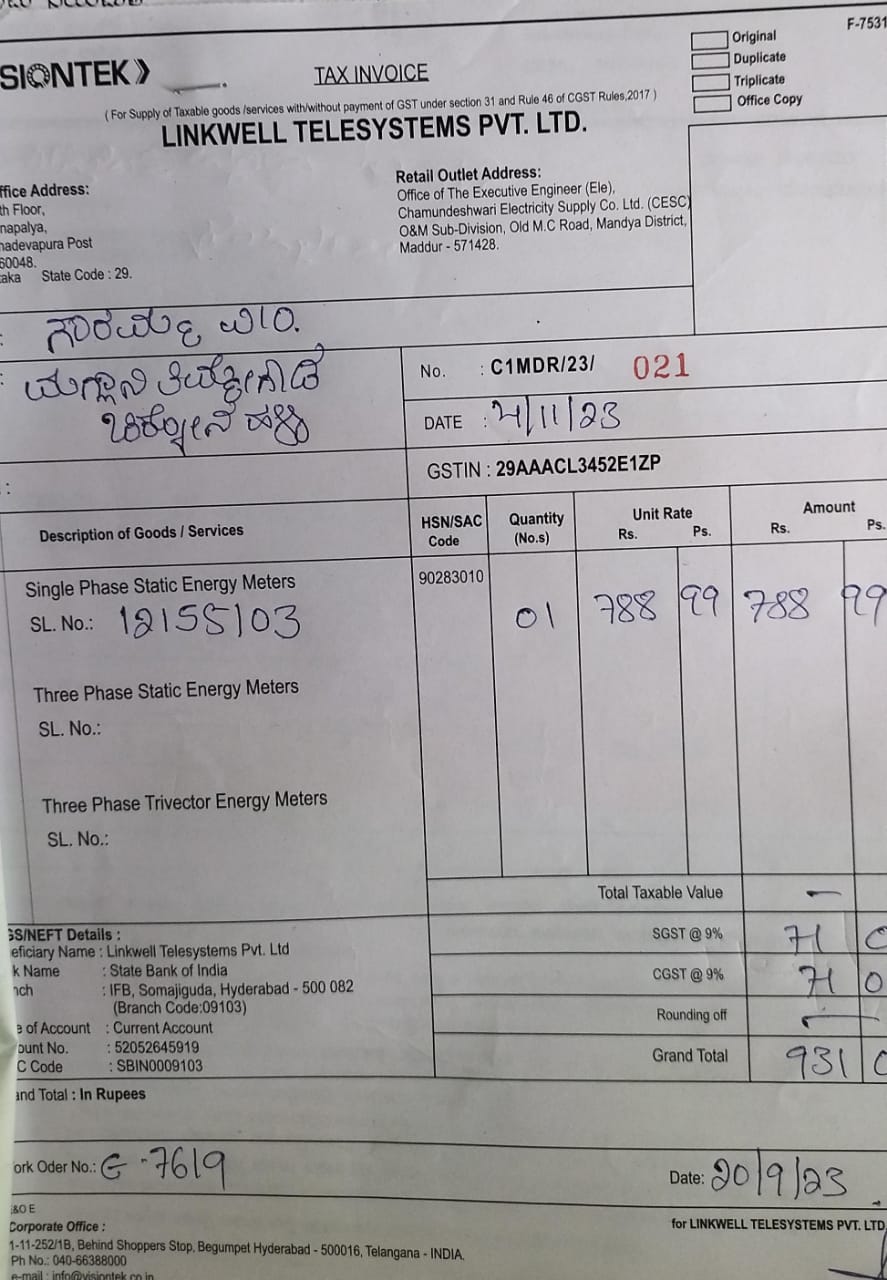 SIONTEK
TAX INVOICE
Original
Duplicate
Triplicate
Office Copy
F-7531
( For Supply of Taxable goods /services with/without payment of GST under section 31 and Rule 46 of CGST Rules,2017 )
LINKWELL TELESYSTEMS PVT. LTD.
ffice Address:
th Floor,
napalya,
nadevapura Post
60048.
aka State Code : 29.
Retail Outlet Address:
Office of The Executive Engineer (Ele),
Chamundeshwari Electricity Supply Co. Ltd. (CESC)
O&M Sub-Division, Old M.C Road, Mandya District,
Maddur - 571428.
No. : C1MDR/23/ 021
DATE : 4/11/23
GSTIN : 29AAACL3452E1ZP
Description of Goods / Services
HSN/SAC Code
Quantity (No.s)
Unit Rate
Rs. Ps.
Amount
Rs. Ps.
Single Phase Static Energy Meters 90283010
SL. No.: 12155103 01 788 99 788 99
Three Phase Static Energy Meters
SL. No.:
Three Phase Trivector Energy Meters
SL. No.:
Total Taxable Value —
SGST @ 9% 71 0
CGST @ 9% 71 0
Rounding off —
Grand Total 931 0
GS/NEFT Details :
eficiary Name : Linkwell Telesystems Pvt. Ltd
k Name : State Bank of India
nch : IFB, Somajiguda, Hyderabad - 500 082
(Branch Code:09103)
e of Account : Current Account
ount No. : 52052645919
C Code : SBIN0009103
and Total : In Rupees
ork Oder No.: G-7619
Date: 20/9/23
&O E
Corporate Office :
1-11-252/1B, Behind Shoppers Stop, Begumpet Hyderabad - 500016, Telangana - INDIA.
Ph No.: 040-66388000
e-mail : info@visiontek.co.in
for LINKWELL TELESYSTEMS PVT. LTD